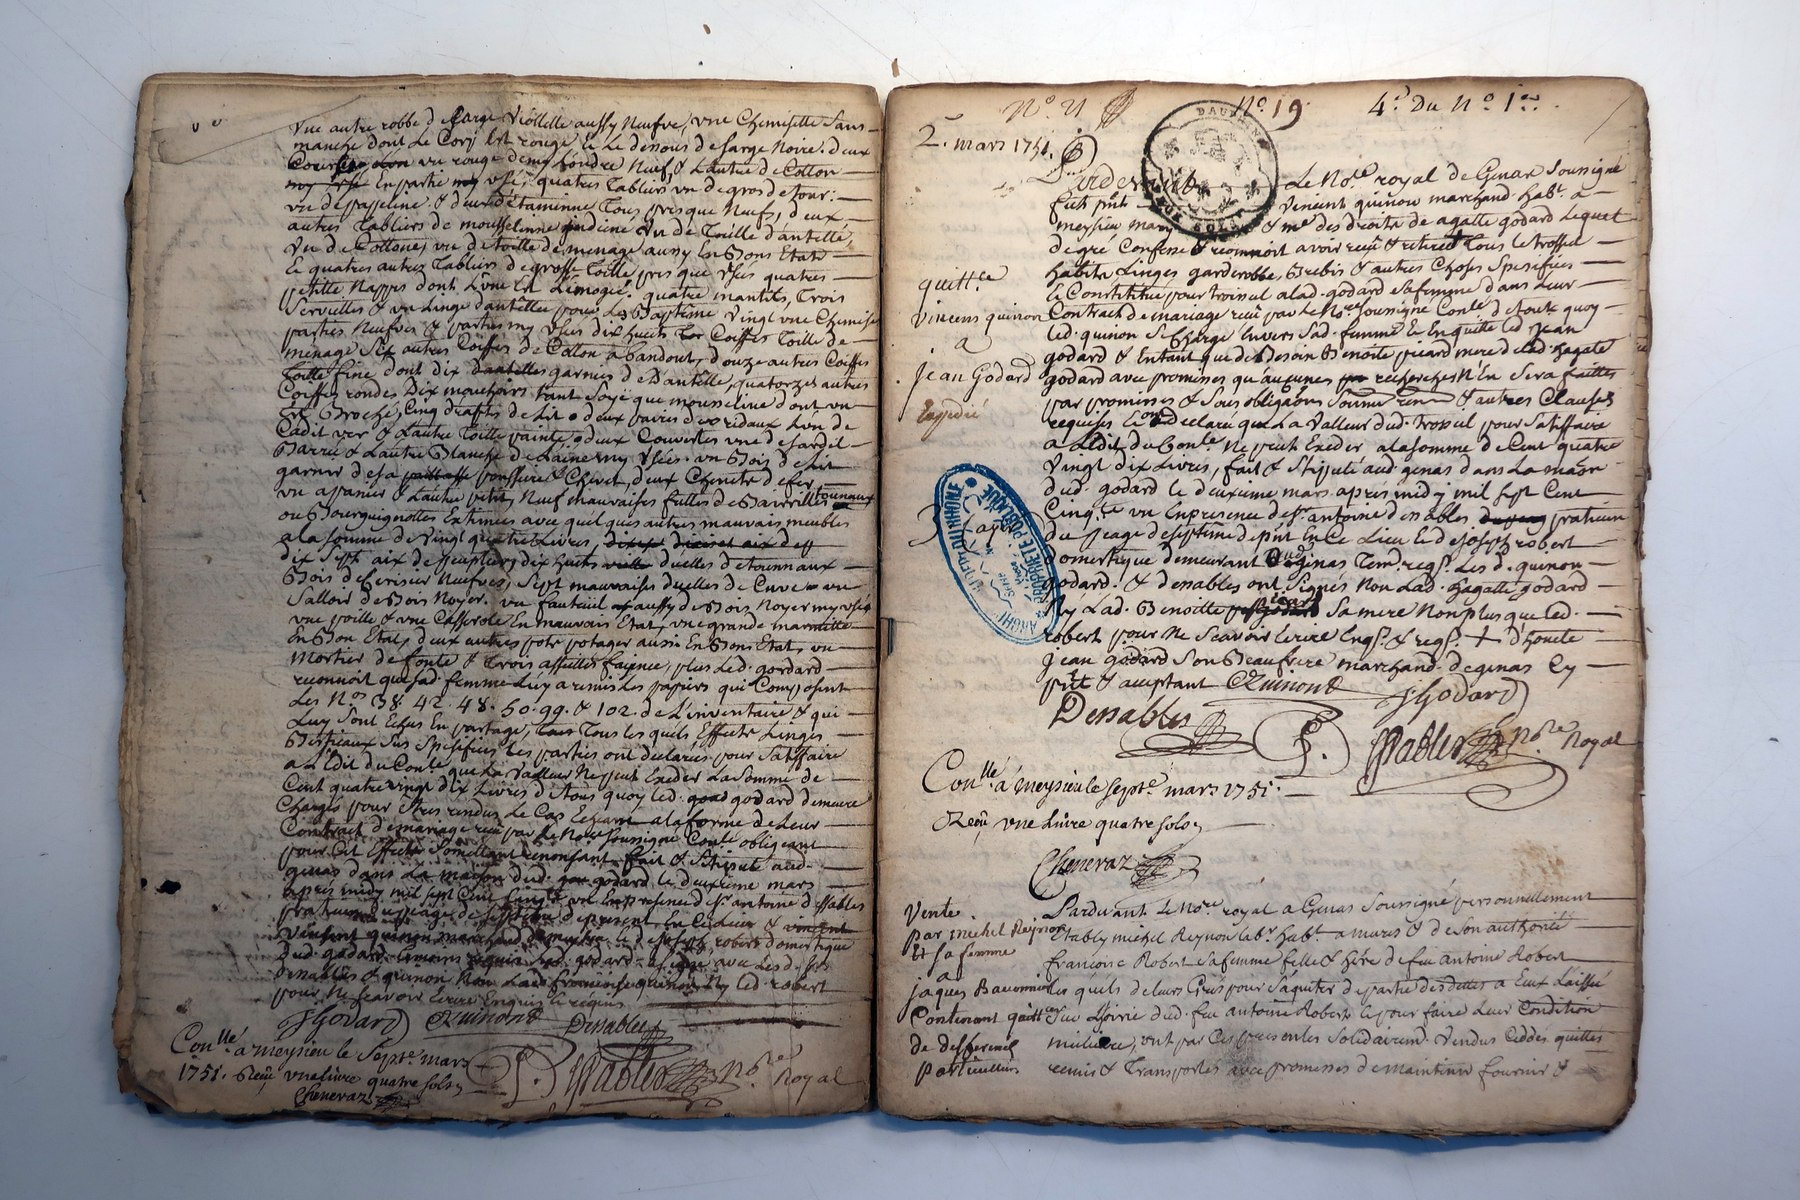 vne autre robbe de sarge Viollette aussy Neufve, vne Chemisette Sans
manche dont Le Corp Est rouge, et Le dessous de sarge Noire. deux
vn rouge demy Londre Neuf, & L'autre de Cotton
En partie my vsé, quatres Tabliers vn de gros de tour:
vn de & deux d'étaminne Tous presque Neufs, deux
autres Tabliers de mousselinne jndiene Vn de Toille d'antellé,
Vn de Cottones vn de toille de menage aussy En Bons Etats
Et quatres autres Tabliers de grosse Toille presque Vsés quatres
petitte Nappes dont L'vne Est Limogié. quatre mantils, Trois
Serviettes & vn Linge d'antelles pour Les Baptême Vingt vne Chemises
parties Neufves & parties my Vsés dix huits Coiffes Toille de
menage Six autres Coiffes de Cotton a bandout, douze autres Coiffes
Toille fine dont dix garnies de D'antelle, quatorzes autres
Coiffes rondes Dix mouchoirs tant Soye que mousseline dont vn
Est Broché, Cinq draps de Lit deux paires de ridaux L'vn de
Cadit ver & L'autre Toille painte, deux Couvertes vne de
Barré & L'autre Blanche de Laine my Vsées. vn Bois de Lit
garnir de sa paillasse Chevet, deux Chenets de fer
vn a panier & L'autre petit, Neuf mauvaises futtes de tonnaux
ou Bourguignottes Estimées avec quelques autres mauvais meubles
a la somme de Vingt quatre Livres,
dix Sept aix de peuplier, dix huits duelles de tounnaux
Bois de Cerisier Neufves, Sept mauvaises duelles de Cuve vn
Salloir de Bois Noyer. vn fauteuil aussy de Bois Noyer my vsé
vne poille & vne Casserole En mauvais Etat, vne grande marmitte
En Bon Etat, deux autres pots potager aussi En Bons Etats, vn
Mortier de fonte & Trois assiettes fayence, plus Led. godard
reconnoit que sad. femme Luy a remis Les papiers qui Composent
Les Nos 38. 42. 48. 50. 99. & 102. de L'inventaire & qui
Luy Sont Echus En partage, Tous Les quels Effects Linges
Bestieaux Sus Spesifiées Les parties ont declarées pour Satiffaire
a L'Edit du Conle que La Valleur Ne peut Exeder La Somme de
Cent quatre vingt dix Livres de tous quoy Led. godard demeure
Chargés pour Etres rendus Le Cas Echeant a la forme de Leur
Contract de mariage reçu par Le Nore soussigné Conlé obligeant
pour Cet Effect Somettant renonsant fait & Stipulé aud.
genas dans La maison dud. godard le deuxieme mars
après midy mil sept Cent Cinqte vn En presence de Sr antoine dessables
praticien du peage de septême de present En Ce Lieu &
Vincent quinon marchand de meysieu et Joseph robert domestique
dud. godard temoins requis Led. godard a signé avec Les d. Srs
denables & quinon Non Lad. francoise quinon Ny Led. robert
pour Ne Scavoir Ecrire Enquis & requis
JGodard Quinond Dessables
Conllé a meysieu le Septe mars
1751. Reçu vne livre quatre sols
Cheneraz
Nore Royal
No 21 No. 19. 4e. Du No. 1er.
2e. mars 1751.
Pardevant Le Nore royal de Genas Soussigné
fut pnt Vincent quinon marchand habt. a
meysieu mary & me des droits de agatte godard Lequel
de gré Confesse & reconnoit avoir reçu & retiré Tous le trossel
habits Linges garderobbe, Brebis & autres Choses Spesifiées
Et Constitué pour troissel a lad. godard sa femme dans Leur
Contract de mariage reçu par Le Nore soussigné Conlé de toute quoy
Led. quinon Se Charge Envers Sad. femme Et En quitte Led. Jean
godard & Entant que de Besoin Benoite picard mere de lad. hagate
godard avec promesses qu'aucunes recherches N'En Sera faittes
par promesses & Sous obligaõns Soumon renon & autres Clauses
requises Et ont declaré que La Valleur dud. Trossel pour Satiffaire
a L'Edit du Conle Ne peut Exeder a la somme de Cent quatre
Vingt dix Livres, fait & Stipulé aud. genas dans La maison
dud. godard Le deuxieme mars après midy mil sept Cent
Cinqte vn En presence de Sr. antoine dessables praticien
du peage de septême de pnt En Ce Lieu Et de Joseph robert
domestique demeurant aud. genas Tem. reqs. Les d. quinon
godard. & dessables ont Signés Non Lad. hagatte godard
Ny Lad. Benoitte Sa mere Non plus que Led.
robert pour Ne Scavoir Ecrire Enqs. & reqs. + d'honete
Jean godard Son Beaufrere marchand de genas Cy
pnt & aceptant Quinond JGodard
Dessables
Nore Royal
quittce
Vincens quinon
a
jean Godard
Expedié
Conllé a meysieu le Septe. mars 1751.
Reçu vne Livre quatre sols
Cheneraz
ARCHIVES DÉPARTEMENTALES
PROPRIÉTÉ PUBLIQUE
Vente
par michel Reynon
Et sa femme
a
jaques Bacconnier
Contenant quittce
de differends
particuliers
Pardevant Le Nore royal a Genas Soussigné personnellement
Etably michel Reynon labr. habt. a mures & de Son authorité
Francoise Robert Sa femme fille & hére de feu antoine Robert
Les quels de leurs Grés pour S'aquiter de partie des dettes a Eux Laissée
Sur L'hoirie dud. feu antoine Robert Et pour faire Leur Condition
meilieure, ont par Ces presentes Solidairemt. Vendus Ceddés quittés
remis & Transportés avec promesses de maintenir fournir &